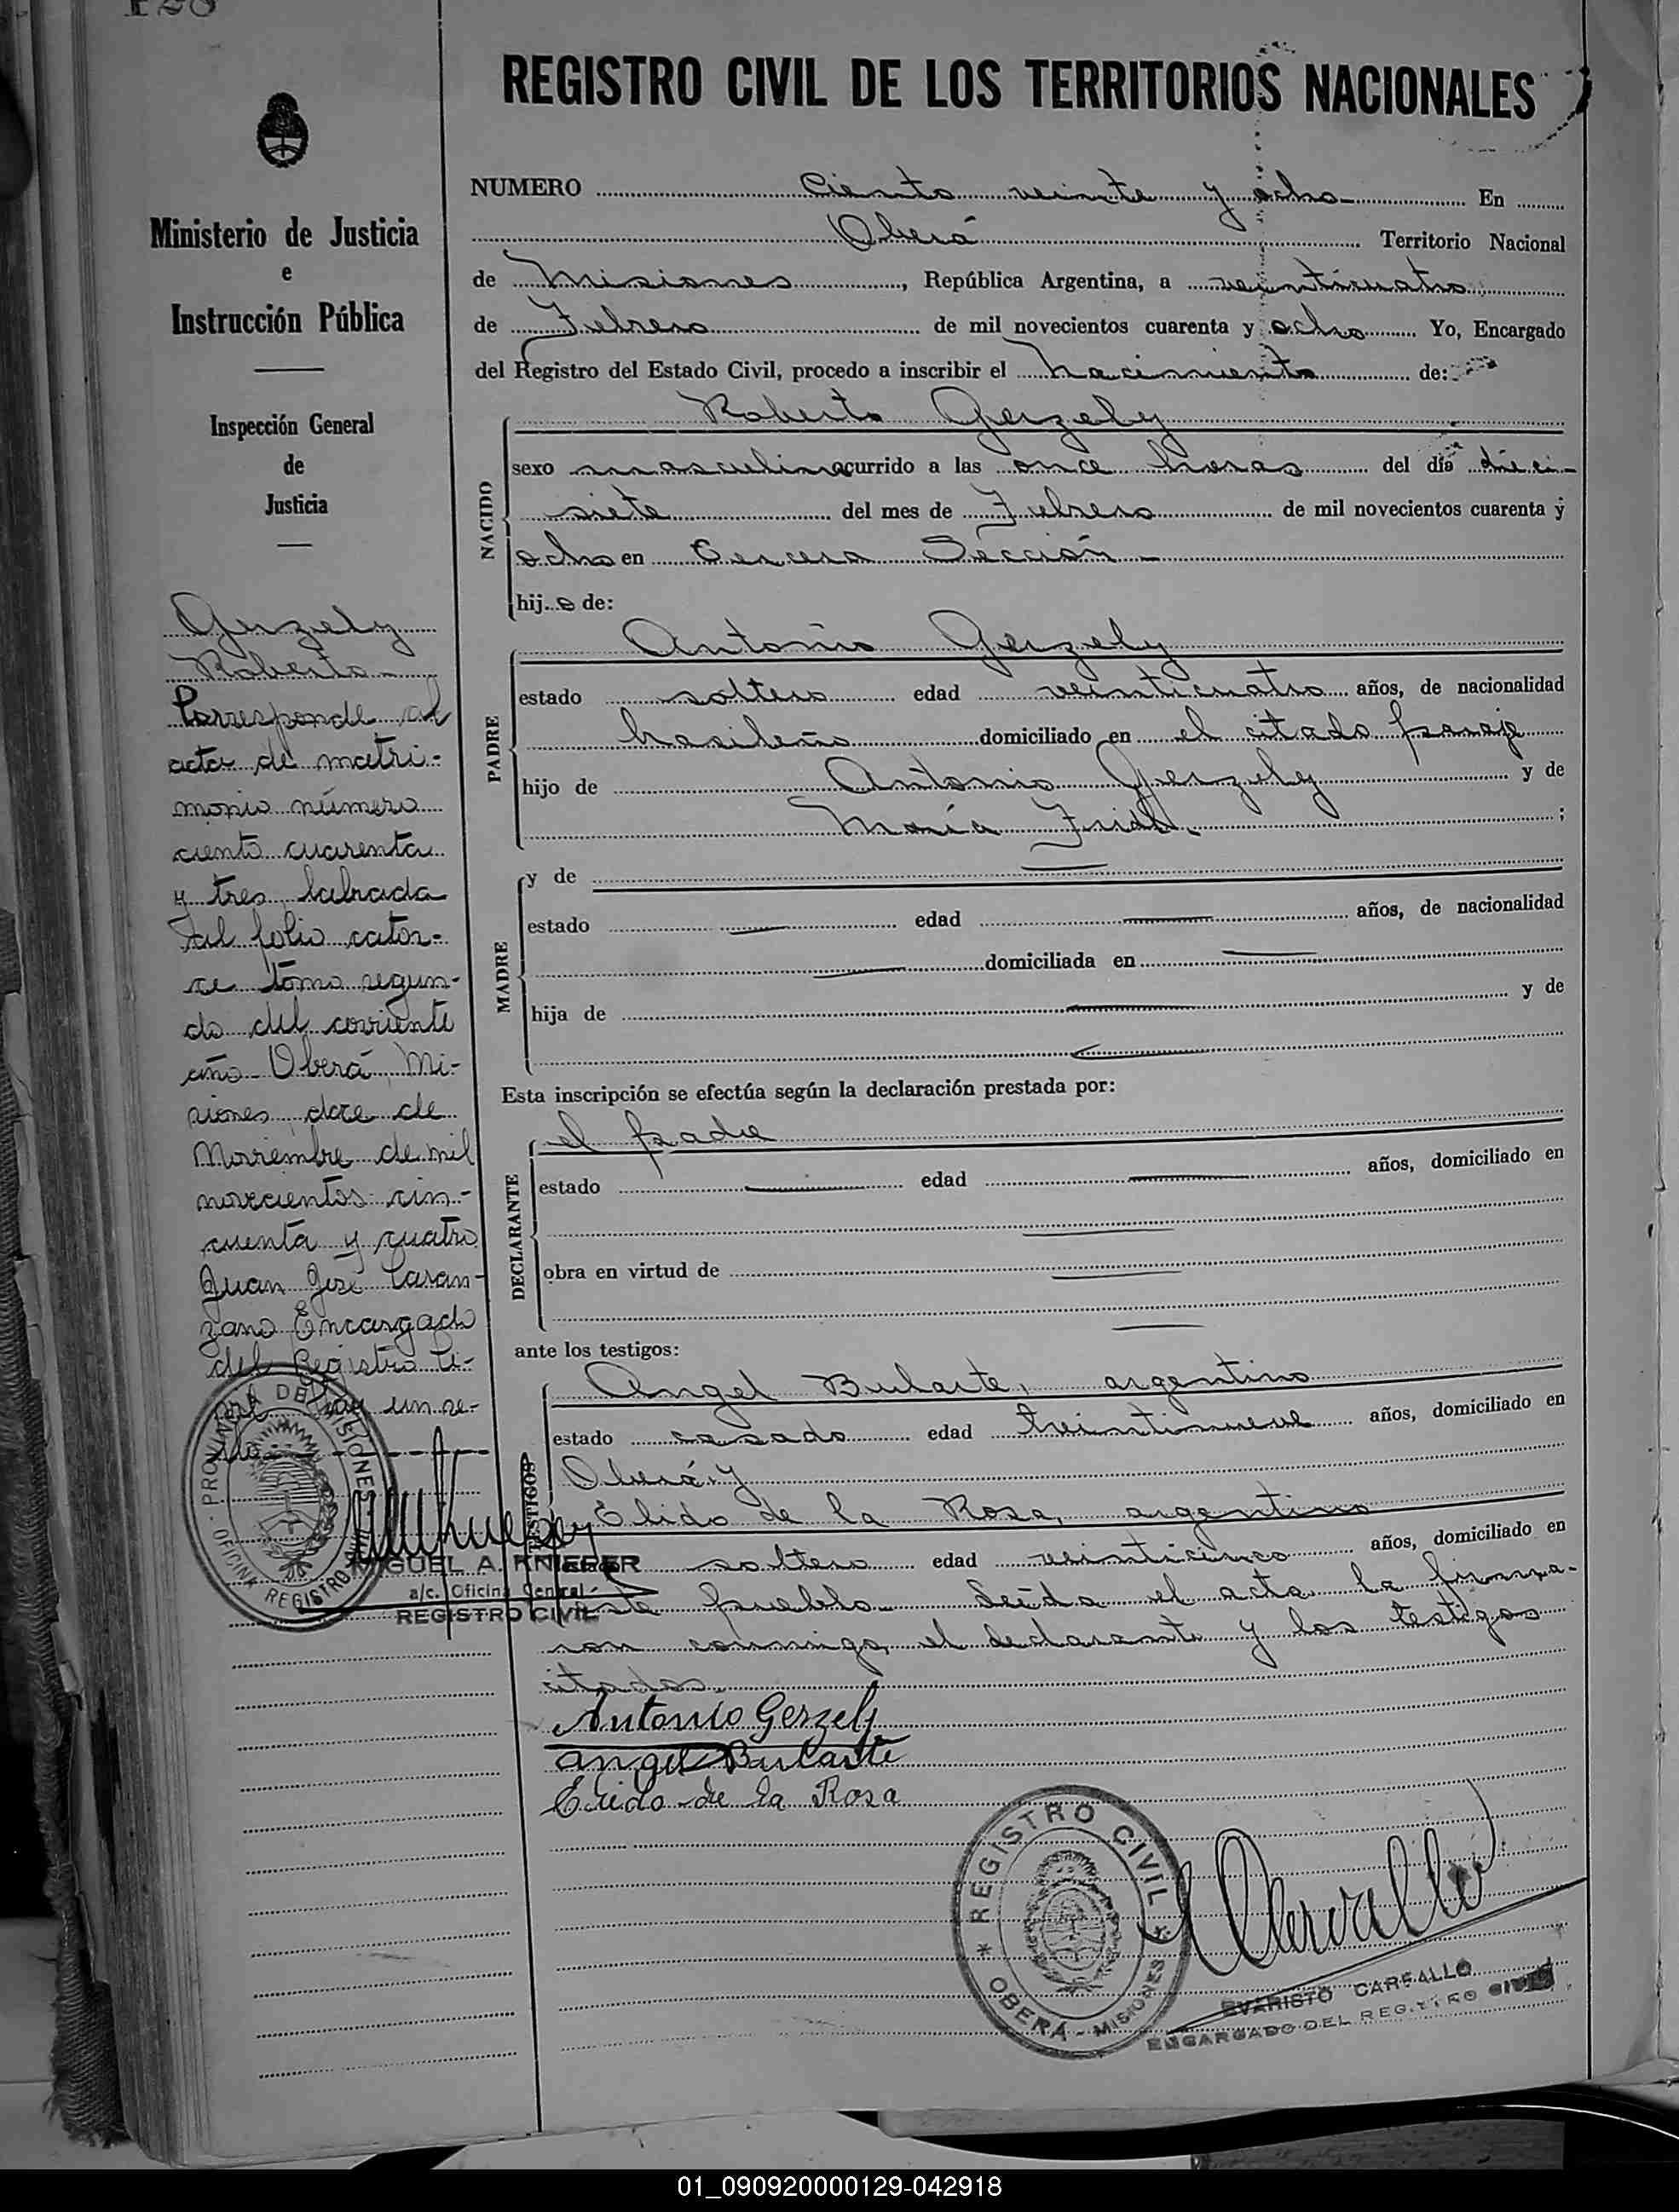 128
REGISTRO CIVIL DE LOS TERRITORIOS NACIONALES
Ministerio de Justicia
e
Instrucción Pública
Inspección General
de
Justicia
Gerzely
Roberto
Corresponde al
acta de matri-
monio número
ciento cuarenta
y tres labrada
al folio cator-
ce tomo segun-
do del corriente
año - Oberá, Mi-
siones, doce de
Noviembre de mil
novecientos cin-
cuenta y cuatro
Juan José Laran-
zano Encargado
del Registro Ci-
vil. Hay un se-
llo
PROVINCIA DE MISIONES
OFICINA REGISTRO
MIGUEL A. KNIEPER
a/c. Oficina Central
REGISTRO CIVIL
NUMERO Ciento veinte y ocho En
Oberá Territorio Nacional
de Misiones, República Argentina, a veinticuatro
de Febrero de mil novecientos cuarenta y ocho Yo, Encargado
del Registro del Estado Civil, procedo a inscribir el nacimiento de:
NACIDO
Roberto Gerzely
sexo masculino ocurrido a las once horas del día dieci-
siete del mes de Febrero de mil novecientos cuarenta y
ocho en Tercera Sección
hij o de:
PADRE
Antonio Gerzely
estado soltero edad veinticuatro años, de nacionalidad
brasileño domiciliado en el citado paraje
hijo de Antonio Gerzely y de
María ;
MADRE
y de
estado edad años, de nacionalidad
domiciliada en
hija de y de
Esta inscripción se efectúa según la declaración prestada por:
DECLARANTE
el padre
estado edad años, domiciliado en
obra en virtud de
ante los testigos:
TESTIGOS
Angel Bularte, argentino
estado casado edad treintinueve años, domiciliado en
Oberá y
Elido de la Rosa, argentino
soltero edad veinticinco años, domiciliado en
este pueblo. Leída el acta la firma-
ron conmigo, el declarante y los testigos
citados.
Antonio Gerzely
Angel Bularte
Elido de la Rosa
REGISTRO CIVIL
OBERÁ - MISIONES
EVARISTO CARFALLO
ENCARGADO DEL REGISTRO CIVIL
01_090920000129-042918